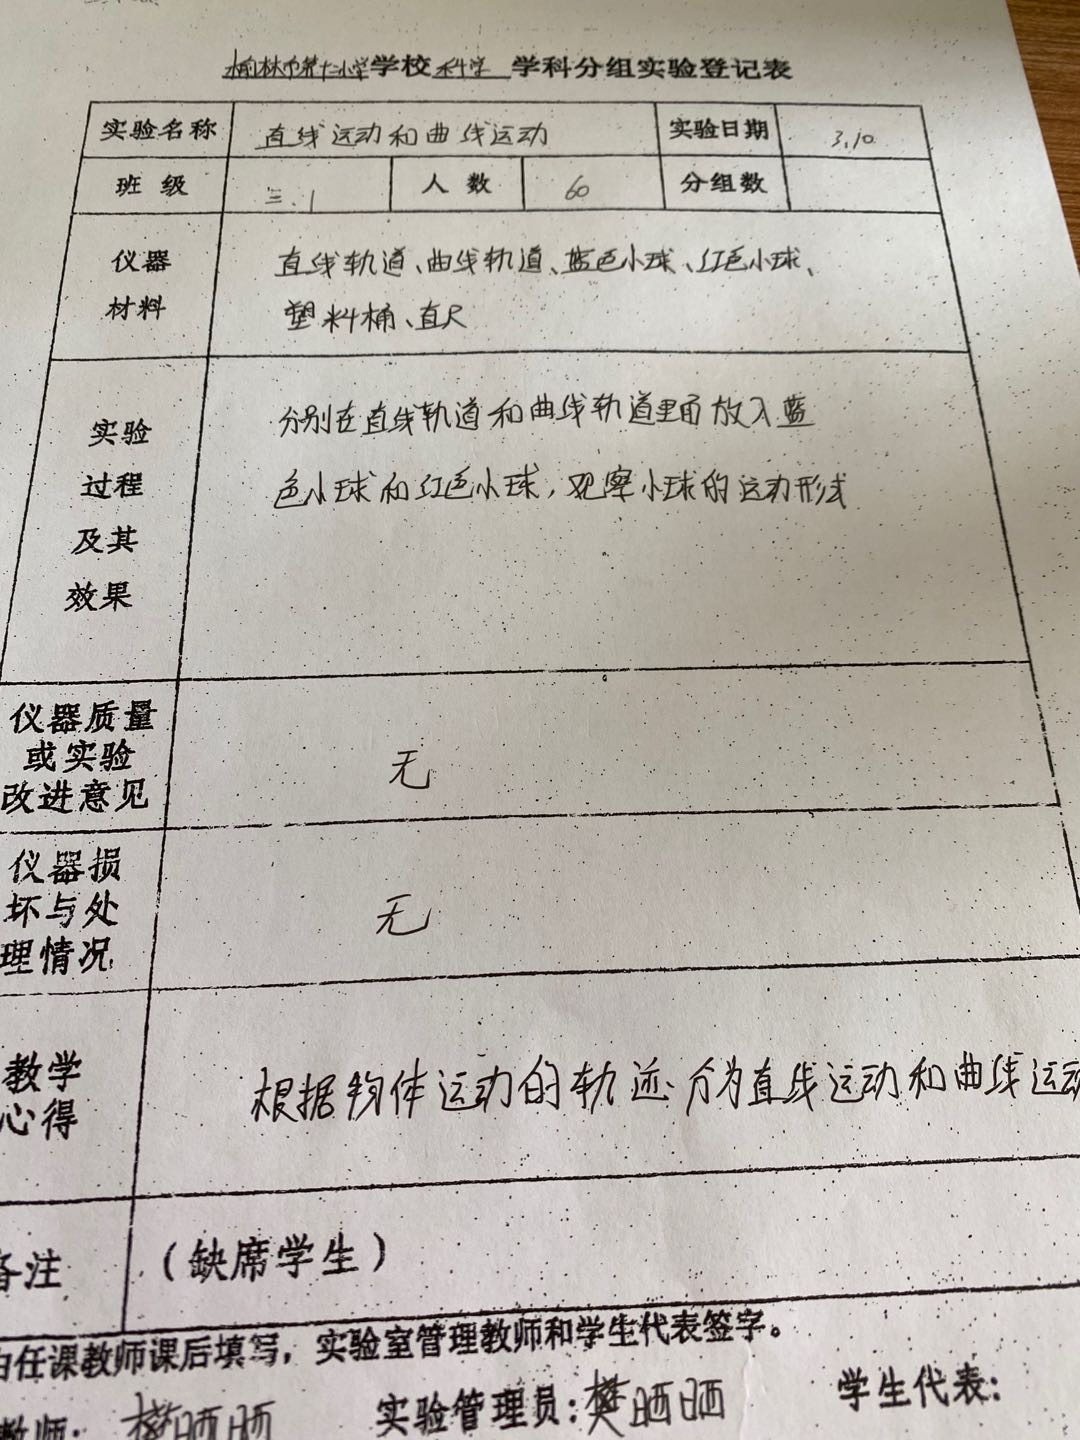 榆林市第十二小学学校 科学 学科分组实验登记表
实验名称 直线运动和曲线运动 实验日期 3.10
班 级 三.1 人 数 60 分组数
仪器 直线轨道、曲线轨道、蓝色小球、红色小球、
材料 塑料桶、直尺
实验 分别在直线轨道和曲线轨道里面放入蓝
过程 色小球和红色小球,观察小球的运动形线
及其
效果
仪器质量
或实验 无
改进意见
仪器损
坏与处 无
理情况
教学 根据物体运动的轨迹分为直线运动和曲线运动
心得
备注 (缺席学生)
由任课教师课后填写,实验室管理教师和学生代表签字。
教师: 樊晒晒 实验管理员:樊晒晒 学生代表: